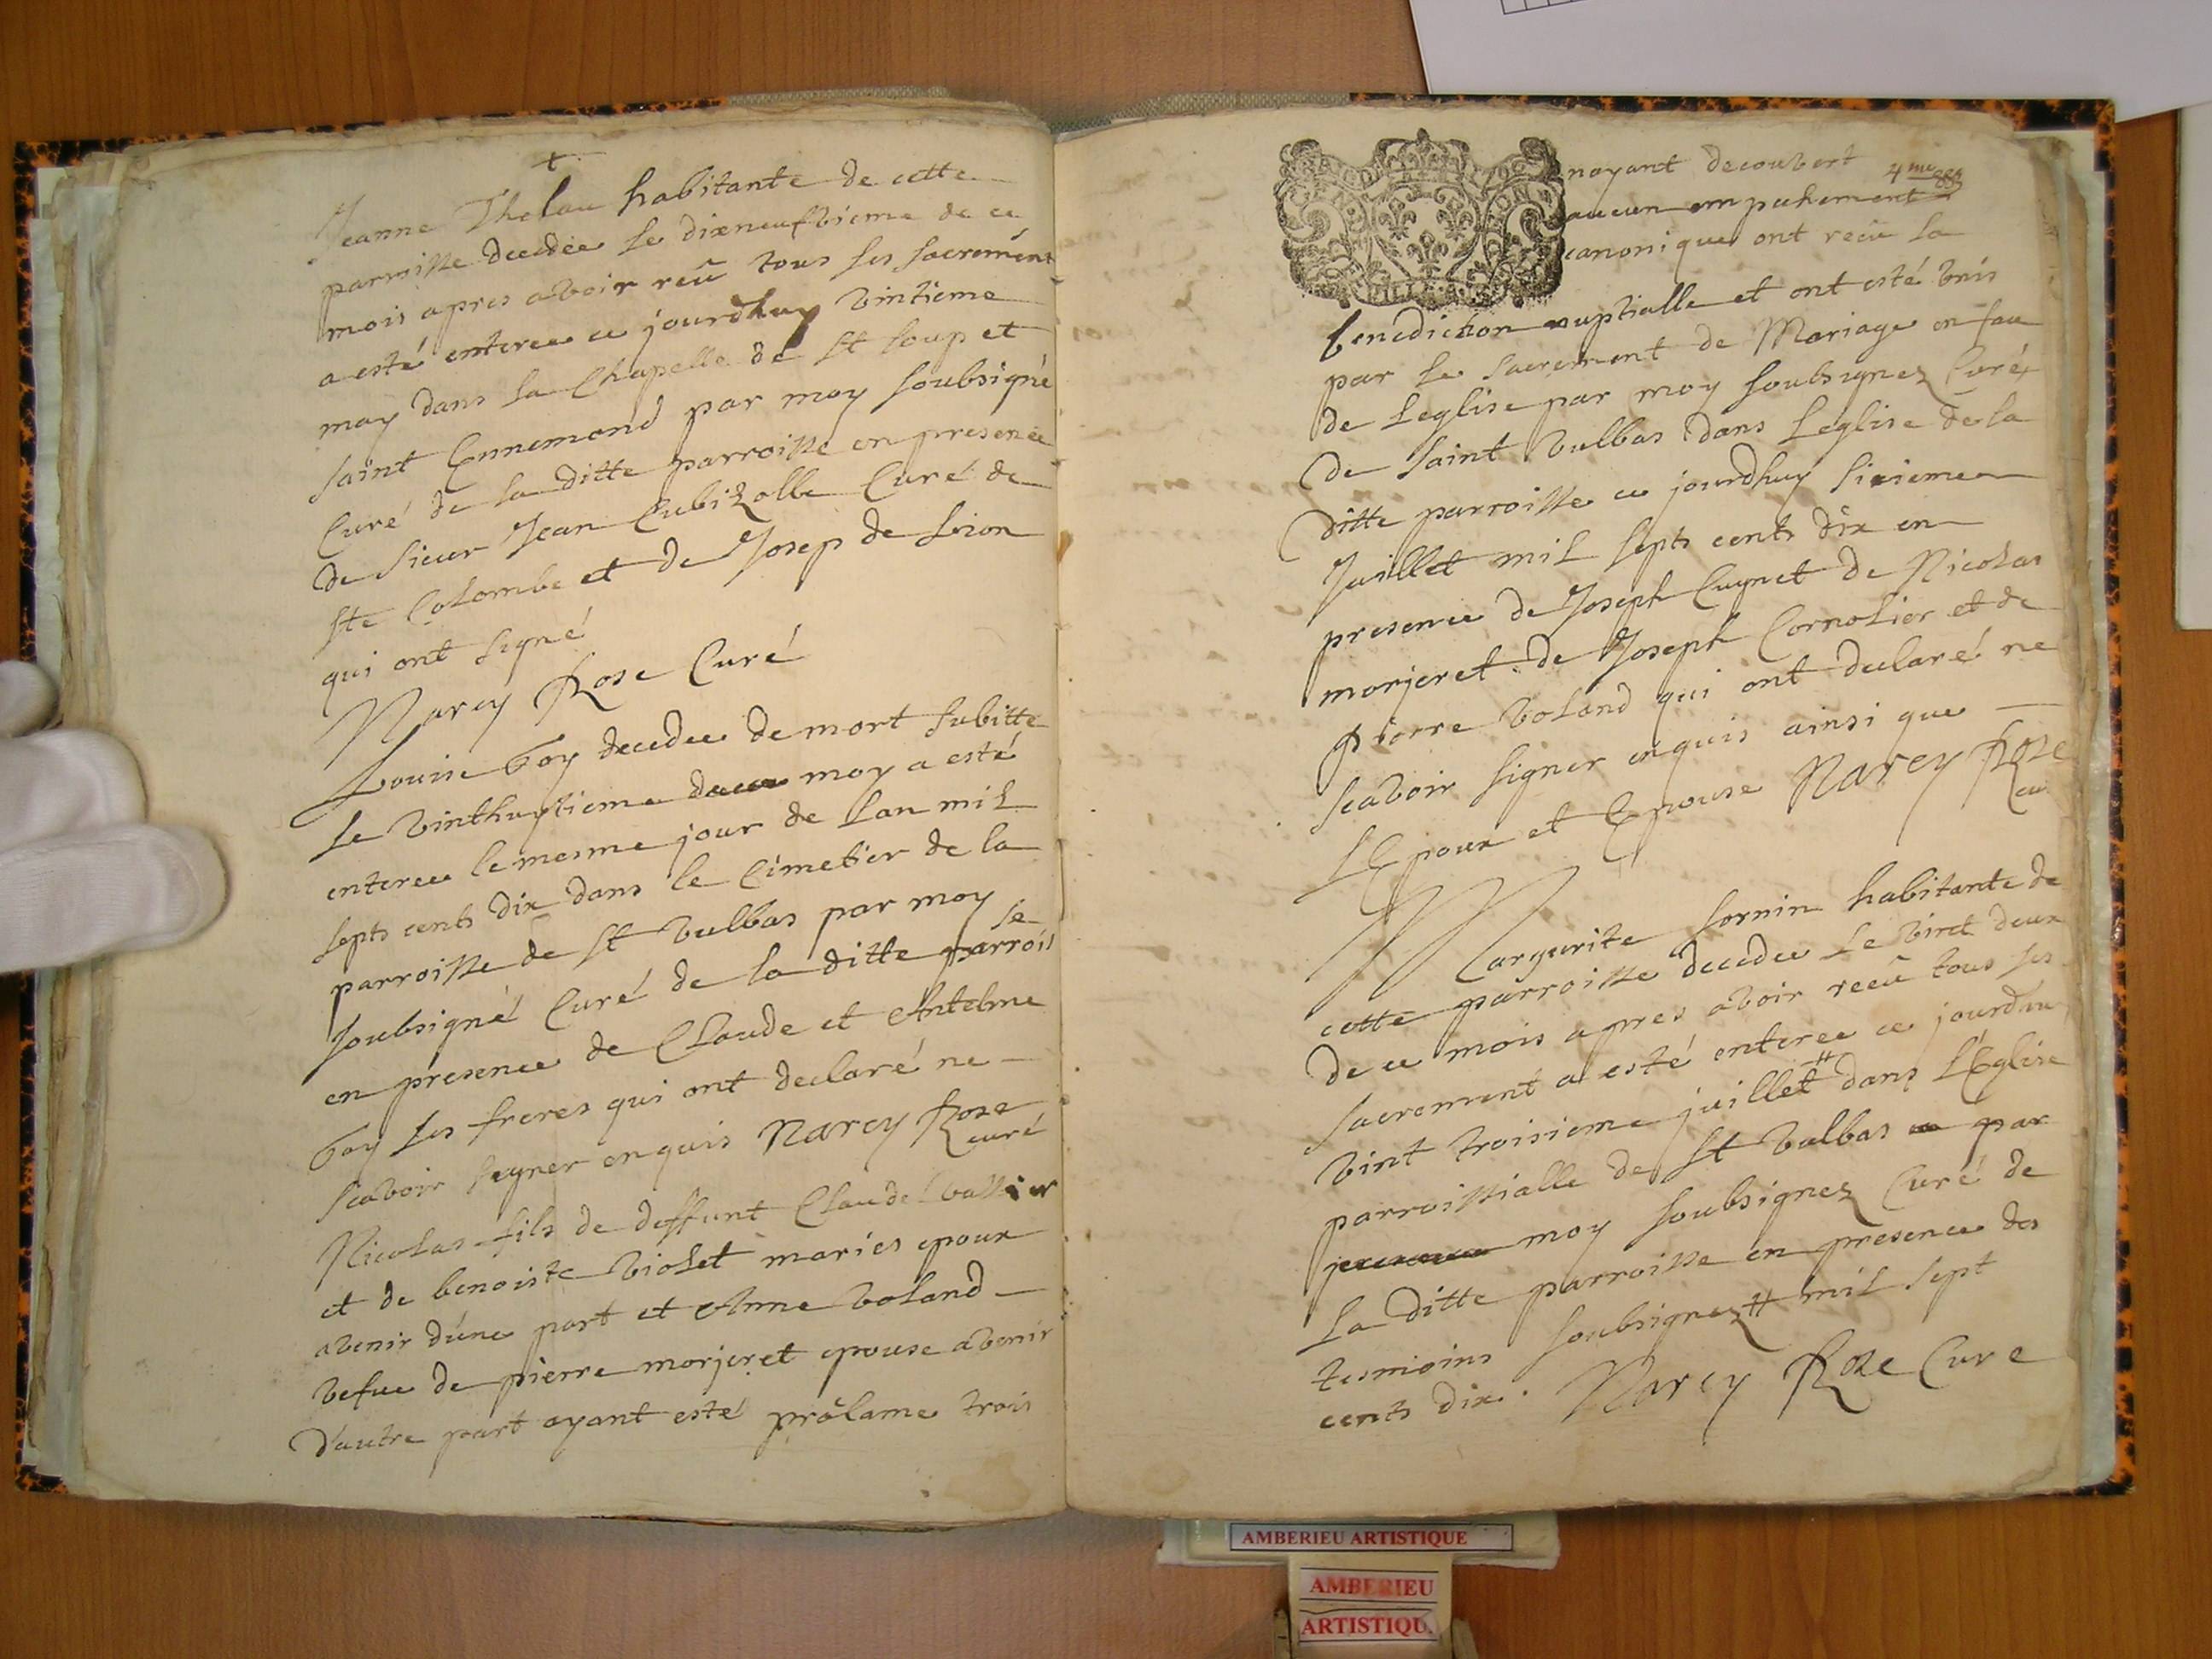 +
Jeanne Thelau habitante de cette
parroisse decedée le dixneufvieme de ce
mois apres avoir reû tous ses sacrement
a esté enteree ce jourdhuy vintieme
may dans la Chapelle de St Loup et
saint Ennemond par moy soubsigné
Curé de la ditte parroisse en presence
de sieur Jean Cubizolle Curé de
ste Colombe et de Josep de Lion
qui ont signé
Narcy Rose Curé
Louise Goy decedee de mort subitte
le vinthuytieme may a esté
enteree le mesme jour de Lan mil
septs cents dix dans le Cimetier de la
parroisse de St vulbas par moy
soubsigné Curé de la ditte parrois se
en presence de Claude et Antelme
Goy ses freres qui ont declaré ne
scavoir signer enquis Narcy Rose
curé
Nicolas fils de deffunt Claude
et de benoiste violet mariés epoux
avenir dúne part et Anne voland
vefue de pierre morjeret epouse avenir
d'autre part ayant esté prôlame trois
4me
nayant decouvert
aucun empechement
canonique ont reçu la
benediction nuptialle et ont esté vnis
par le sacrement de Mariage en face
de Leglise par moy soubsignez Curé
de saint vulbas dans Leglise de la
ditte parroisse ce jourdhuy sixieme
Juillet mil septs cents dix en
presence de Joseph Cuynet de Nicolas
morjeret de Joseph Cornolier et de
pierre voland qui ont declaré ne
scavoir signer enquis ainsi que
LEpoux et Epouse Narcy Roze
cu
Margurite sornin habitante de
cette parroisse decedee le vint deux
de ce mois apres avoir receû tous ses
sacrement a esté enteree ce jourdhu
vint troisieme juillet # dans LÉglise
parroissialle de St vulbas par
moy soubsignez Curé de
La ditte parroisse en presence des
tesmoins soubsignez # mil sept
cents dix. Narcy Roze Cure
AMBERIEU ARTISTIQUE
AMBERIEU
ARTISTIQU